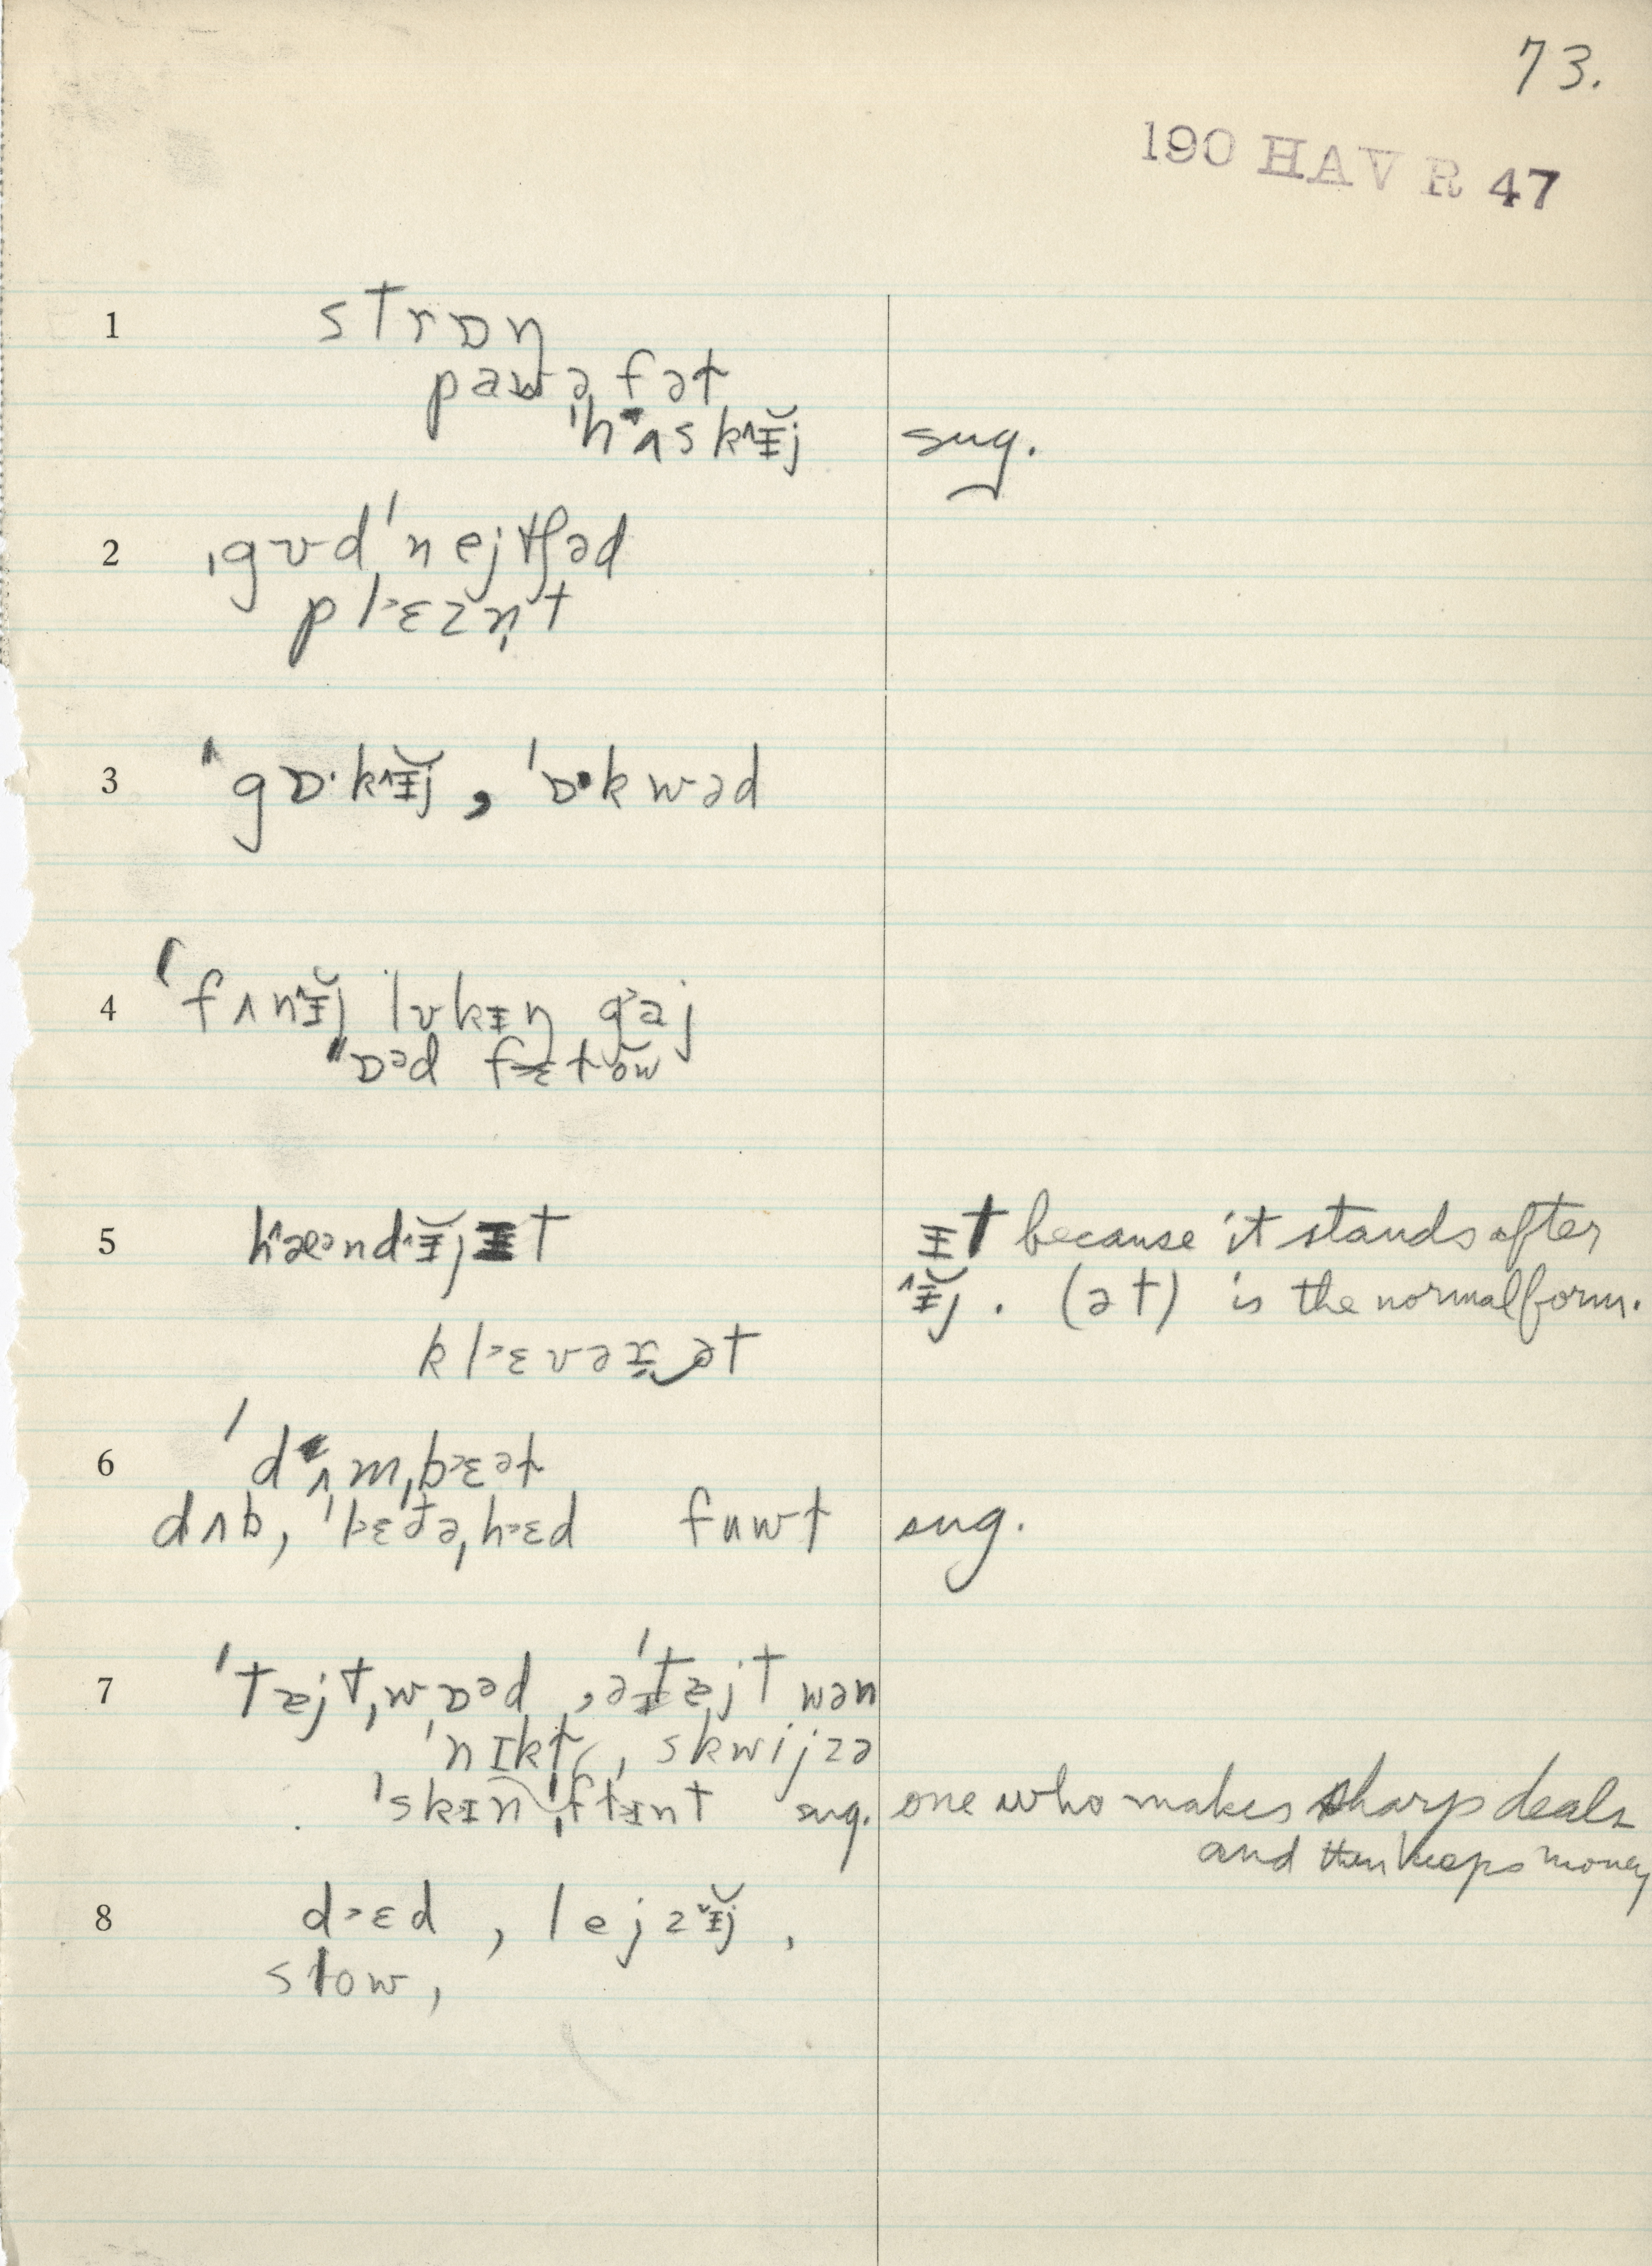 73.
190 HAVR 47
1 strɒŋ
pawəfət
ˈhʌsk^ɪ̵̆j sug.
2 ˌgʊdˈnejtʃəd
pl>ɛzn̩t
3 ˈgɒ·k^ɪ̵̆j, ˈɒ·kwəd
4 ˈfʌn^ɪ̵̆j lʊkɪ̵ŋ g>aj
"ɒᵊd f>ɛt ŏw
5 h^æᵊnd^ɪ̵̆jɪ̵t ɪ̵t because it stands after
^ɪ̵̆j. (ət) is the normal form.
kl>ɛvər̬‿ət
6 ˈdʌmˌb>ɛət
dʌb, ˈl>ɛt̬əˌh>ɛd fuwt sug.
7 ˈtajtˌwɒᵊd, əˈtajt wən
ˈnɪkt, skwijzə
ˈskɪ̵nˌflɪ̵nt sug. one who makes sharp deals
and then keeps money
8 d>ɛd, lejz˅ɪ̵̆j,
slow,